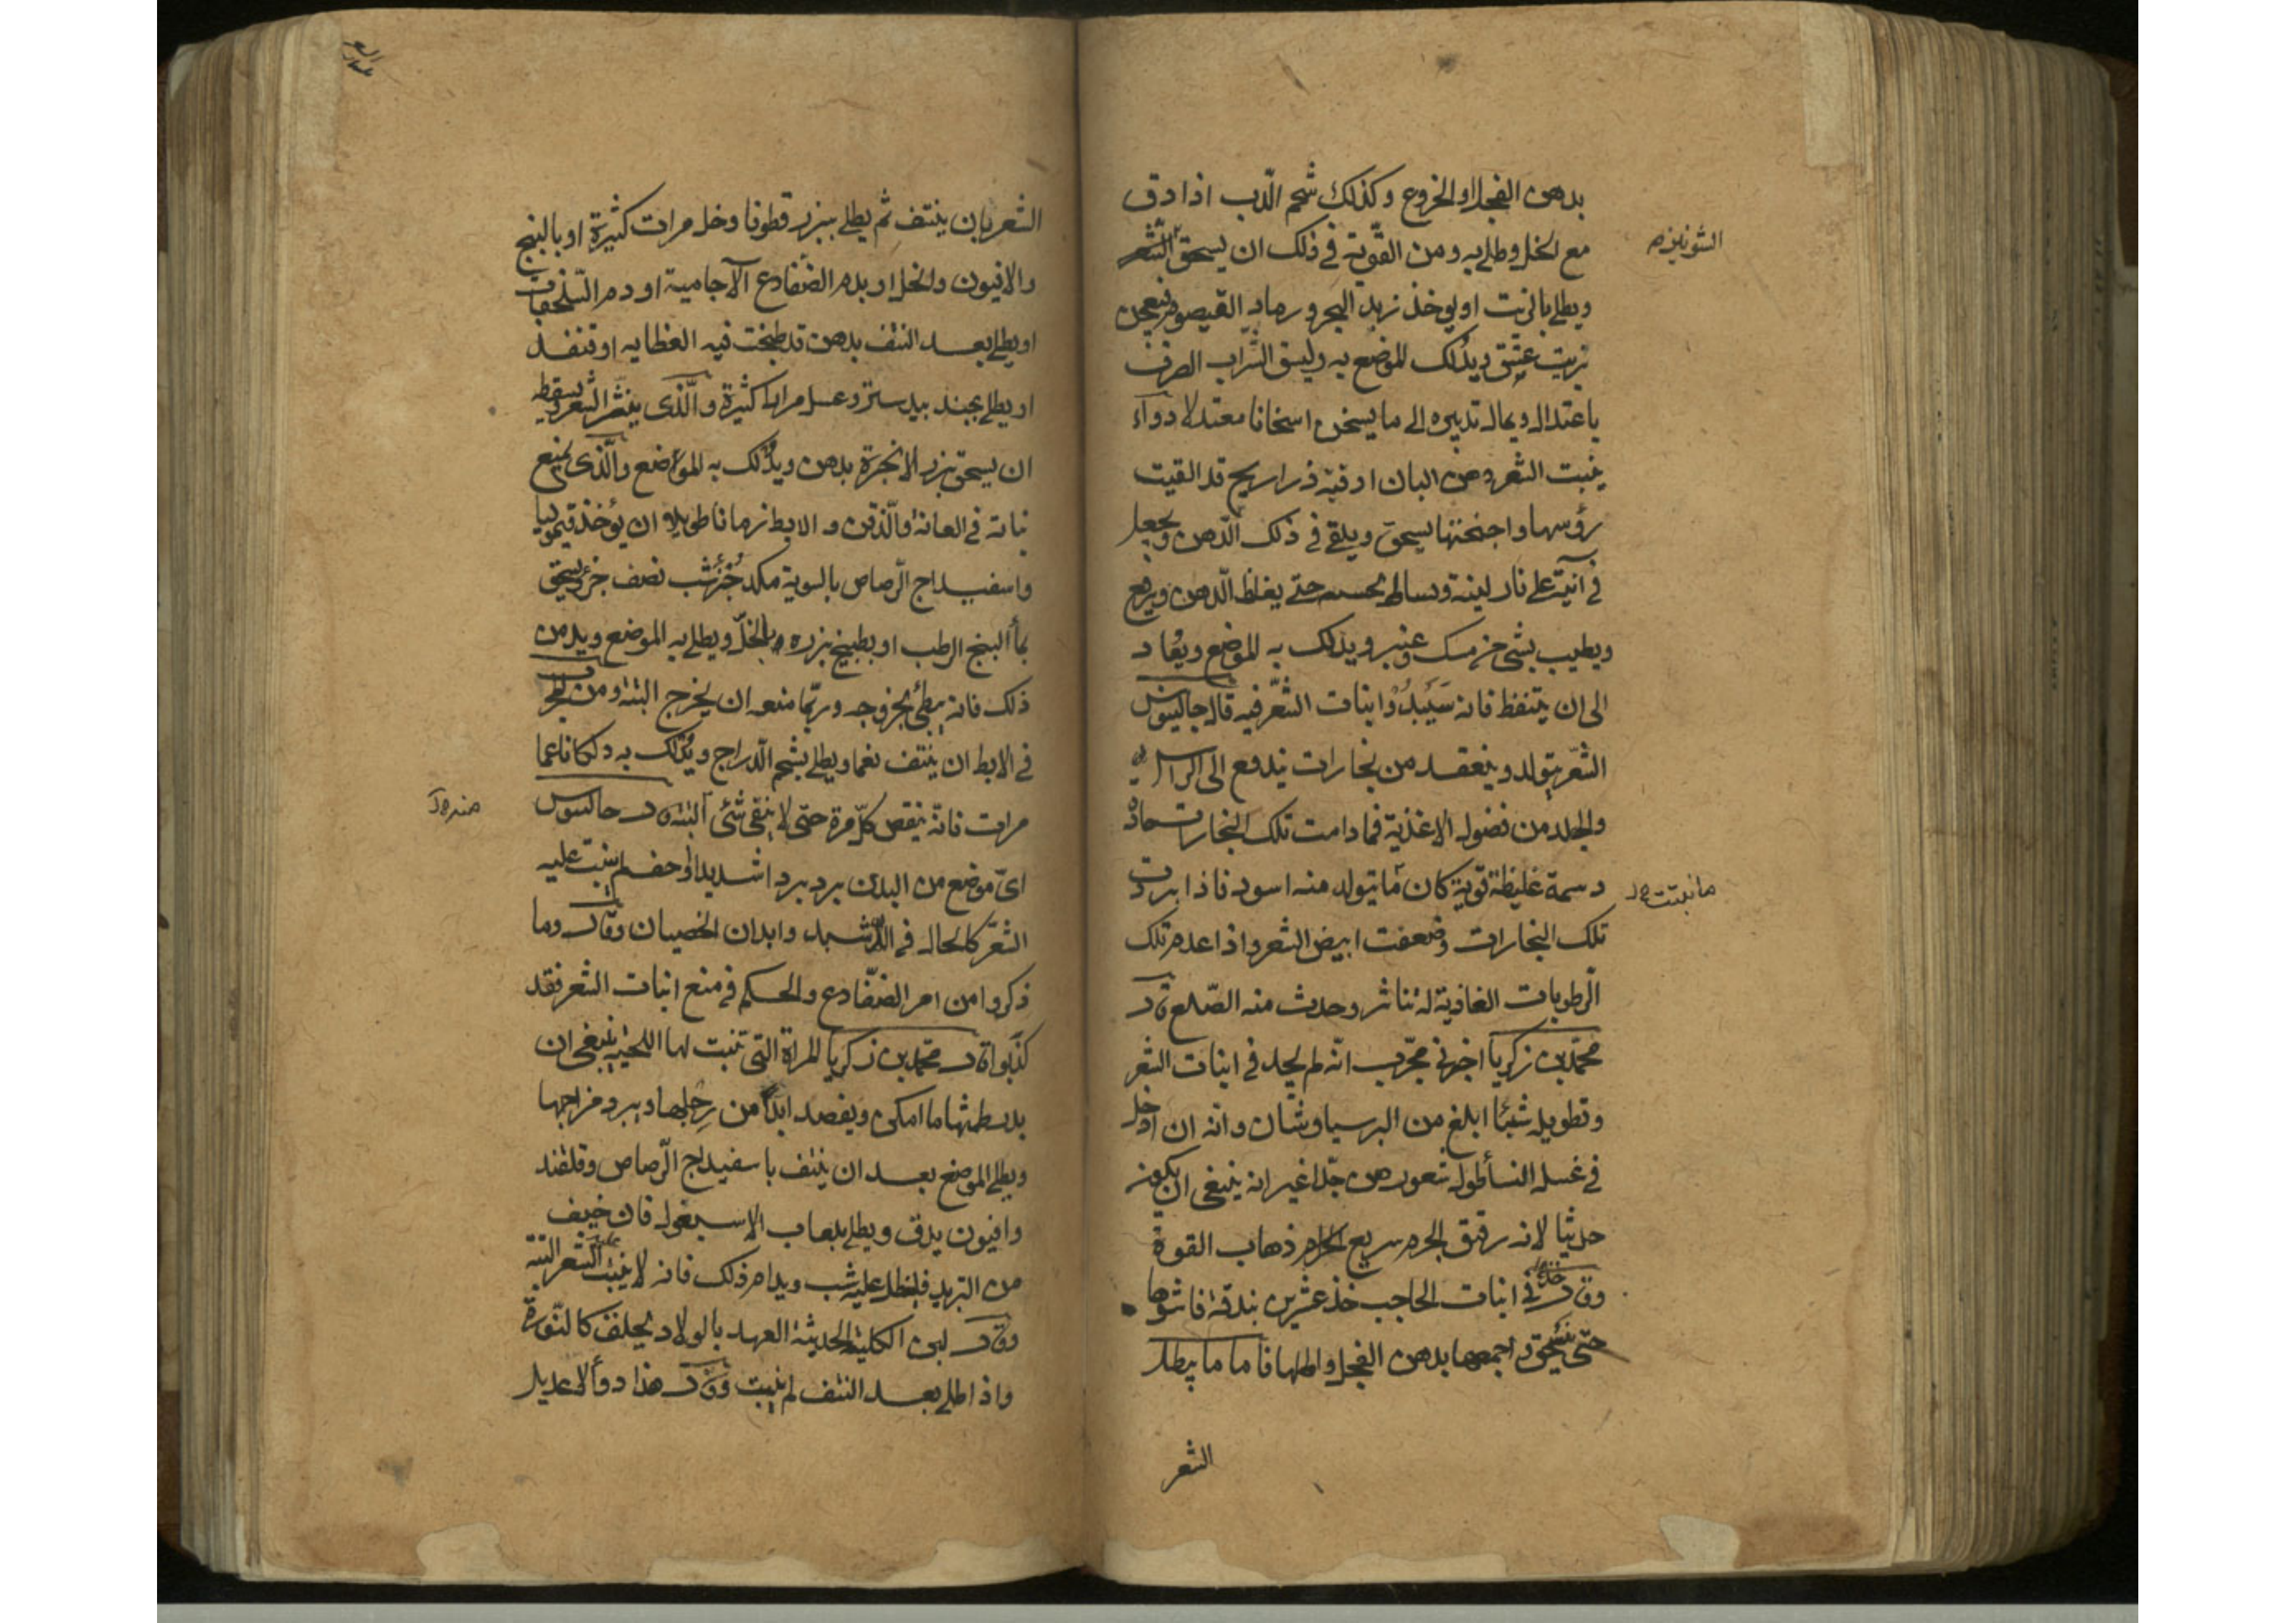 بدهن الفجل او الخروع وكذلك شحم الدّب اذا دق
مع الخل وطلى به ومن القويّة فى ذلك ان يسحق الشعر
الشونيز
ويطلى بالزيت او يوخذ زبد البحر ورماد القيصوم فيعجن
بزيت عتيق ويدلك الموضع به وليسق الشراب الصرف
باعتدال ويمال تدبيره الى ما يسخن اسخانا معتدلا دواء
ينبت الشعر دهن البان اوقيّة ذراريح قد القيت
رؤسها واجنحتها يسحق ويلقى فى ذلك الدّهن ويجعل
فى آنية على نار لينة حتّى يغلظ الدّهن ويرفع
ويطيب بشئ من مسك وعنبر ويدلك به الموضع ويعاد
الى ان يتنفظ فانه سيبدوا نبات الشّعر فيه قال جالينوس
الشّعر يتولد وينعقد من بخارات تندفع الى الراس
والجلد من فضول الاغذية فما دامت تلك البخارات حادّة
دسمة غليظة قوية كان ما يتولد منه اسود فاذا بردت
ما ينبت
تلك البخارات وضعفت ابيض الشعر واذا عدم تلك
الرّطوبات الغاذية له تناثر وحدث منه الصّلع ق‍ال
محمّد بن زكريا اخبرنى مجرّب انّه لم يجد فى انبات الشعر
وتطويله شيئا ابلغ من البرسياوشان وانه ان ادخل
فى غسل النسأ طول شعورهن جدّا غير انه ينبغى ان يكون
حديثا لانه رقيق الجرم سريع ذهاب القوة
وقال فى انبات الحاجب خذ عشرين بندقة فاشوها
حتّى تنسحق واجمعها بدهن الفجل واطلها فاما ما يبطل
الشعر
الشعر بان ينتف ثم يطلى ببزر قطونا وخل مرات كثيرة او بالبنج
والافيون والخل او بدم الضفادع الآجامية او دم السّلحفات
او يطلى بعد النتف بدهن قد طبخت فيه العظايه او قنفذ
او يطلى بجند بيدستر وعسل مرارا كثيرة والّذى ينثر الشعر ويسقطه
ان يسحق بزر الانجرة بدهن ويدلك به المواضع والّذى يمنع
نباته فى العانة والذقن والابط زمانا طويلا ان يؤخذ قيموليا
واسفيداج الرّصاص بالسوية مكد جزء شب نصف جزء ويسحق
بمأ البنج الرطب او بطبيخ بزره وبالخلّ ويطلى به الموضع ويدمن
ذلك فانه يبطئ بخروجه وربّما منعه ان يخرج البتة ومن
فى الابط ان ينتف نعما ويطلى بشحم الدّراج ويدلك به دلكا ناعما
مرات فانّه ينقص كلّ مرة حتى لا يبقى شئ البتة ق‍ال جالينوس
اىّ موضع من البدن برد بردا شديدا او جف لم ينبت عليه
الشّعر كالحال فى وابدان الخصيان وقال وما
ذكروا من امر الضّفادع والحكم فى منع انبات الشعر فقد
كذّبوا ق‍ال محمّد بن زكريا للمراة التى تنبت لها اللحية ينبغى ان
يدر طمثها ما امكن ويفصد ابدا من رجلها ويبرد مزاجها
ويطلى الموضع بعد ان ينتف باسفيداج الرّصاص وقلقند
وافيون يدق ويطلى بلعاب الاسبغول فان خيف
من التبريد فليطل عليه شب ويدام ذلك فانه لا ينبت الشعر البتة
وقال لبن الكلبة الحديثة العهد بالولاد يحلق كالنّورة
واذا طلى بعد النتف لم ينبت وقال هذا دوأ لا عديل